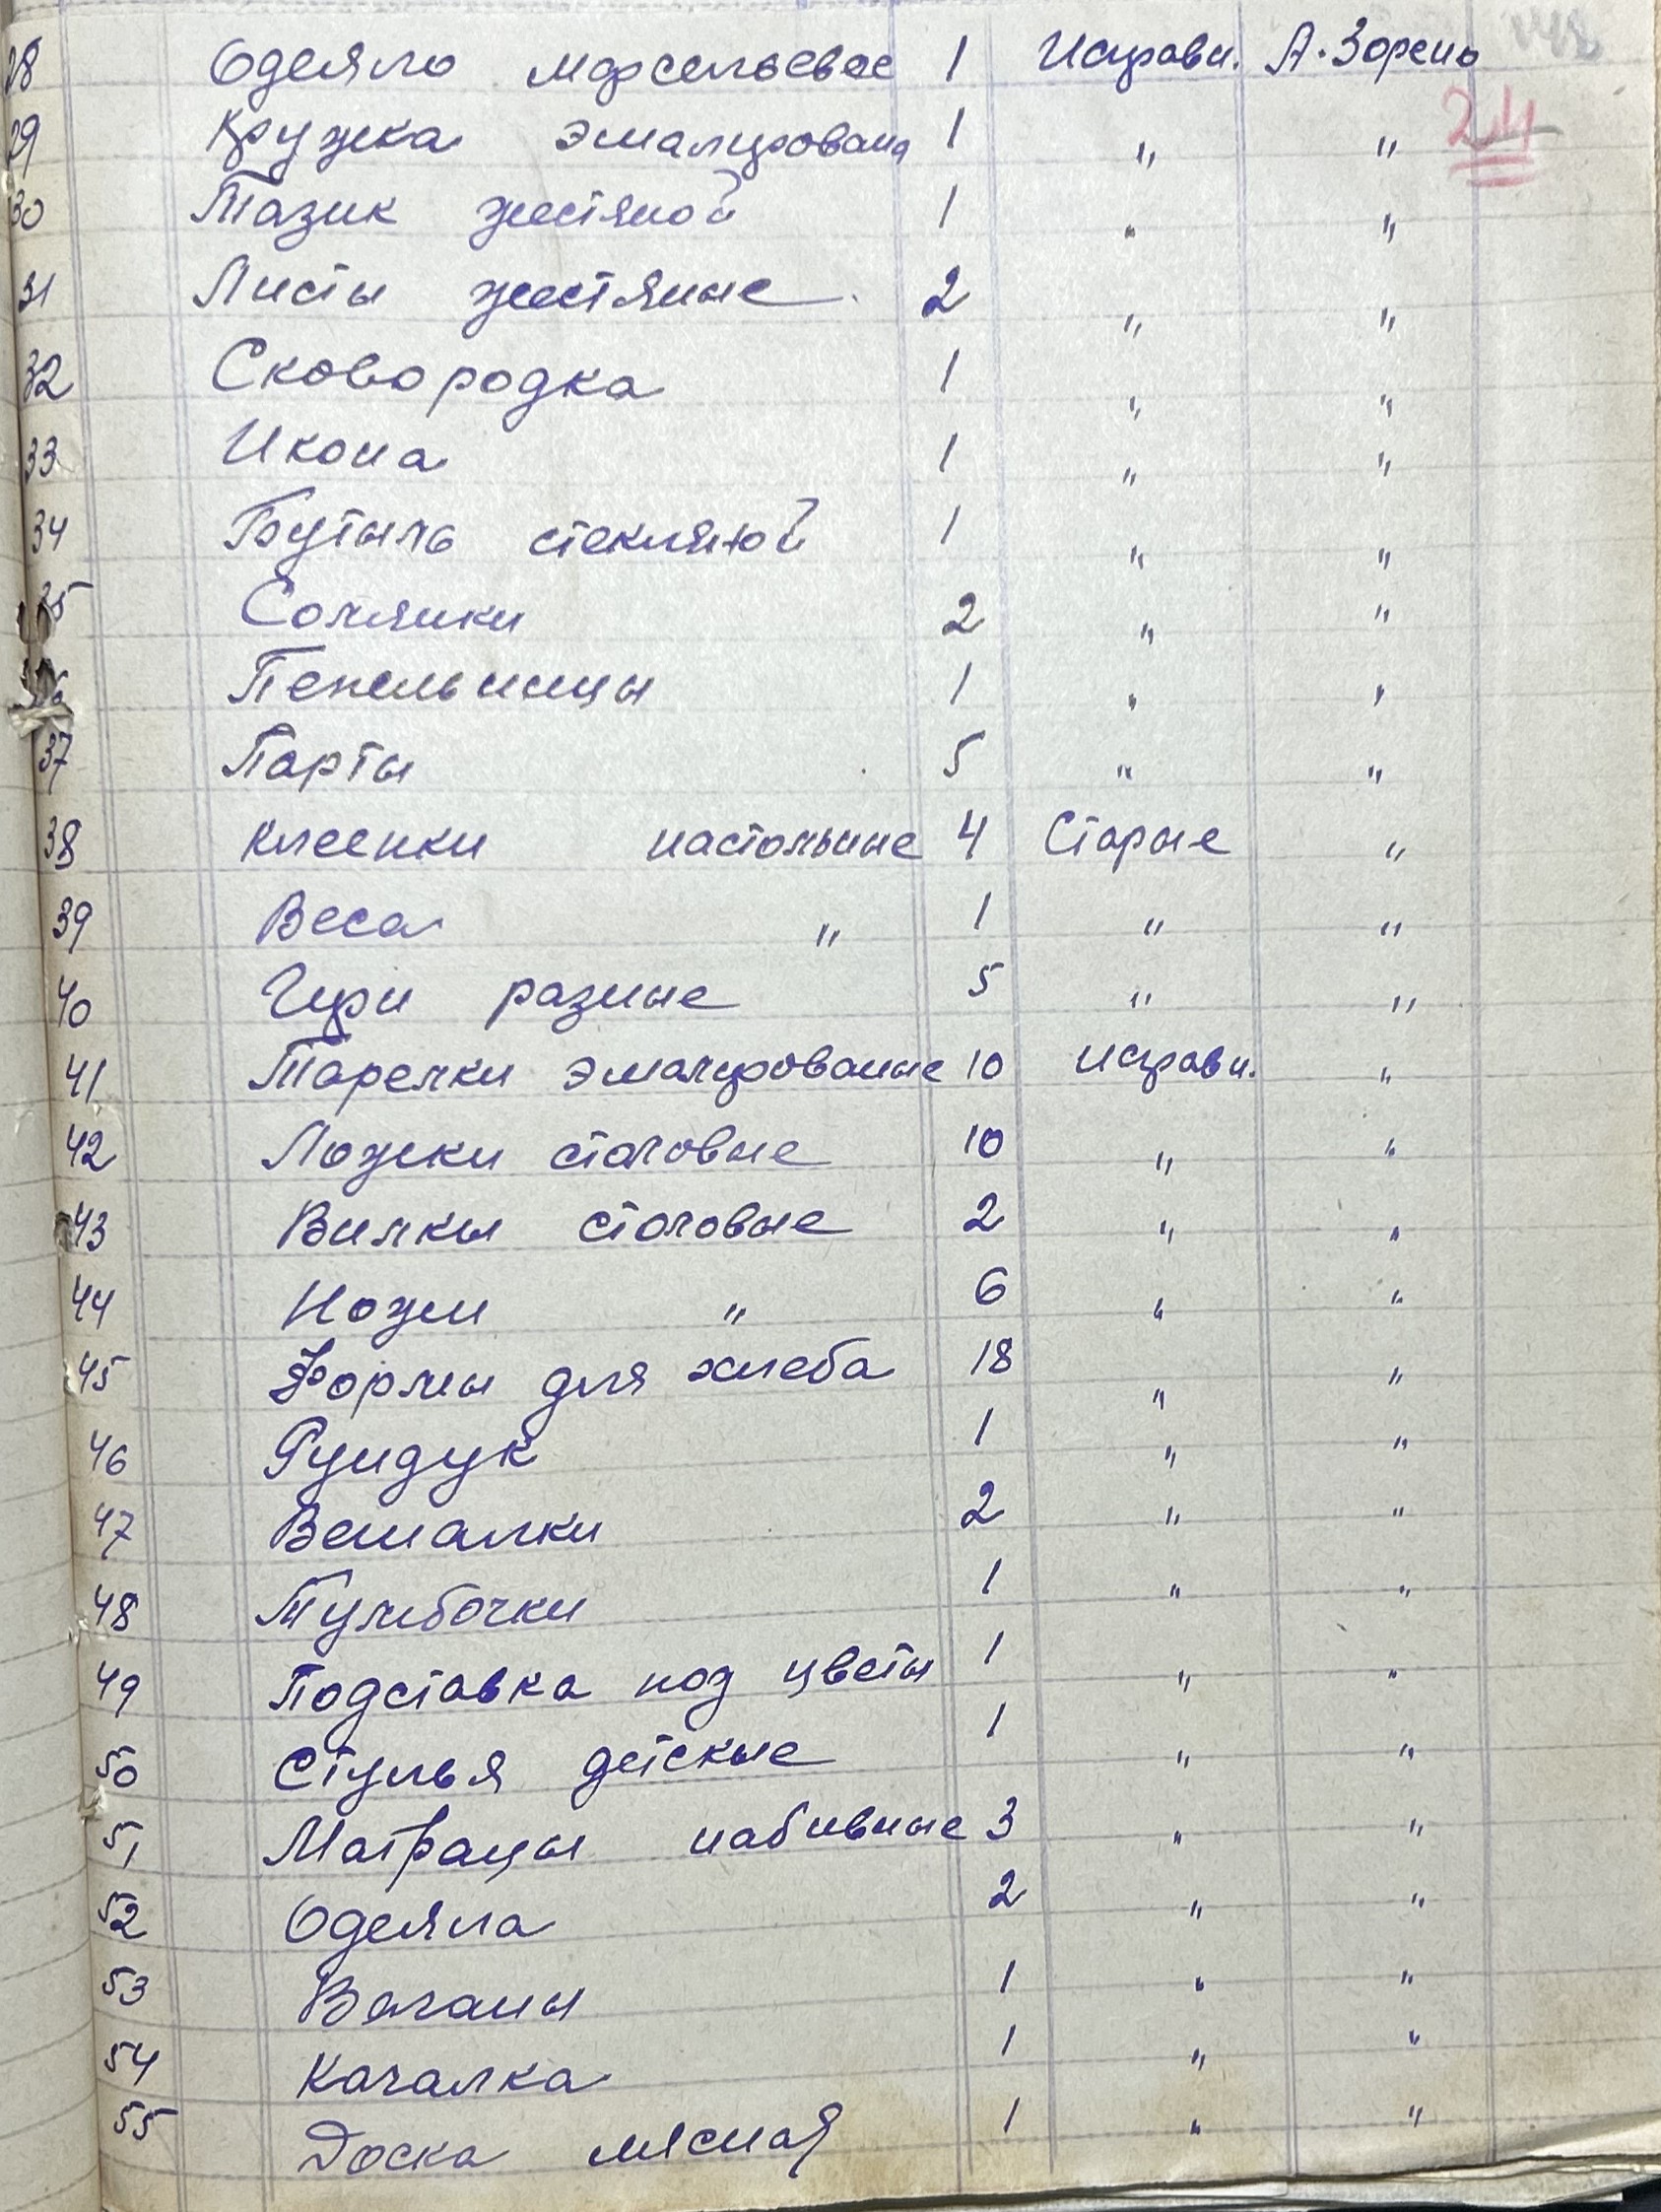 28 Одеяло марсельевое 1 Исправн. А. Зорень 148
24
29 Кружка эмалирована 1 " "
30 Тазик жестяной 1 " "
31 Листы жестяные 2 " "
32 Сковородка 1 " "
33 Икона 1 " "
34 Бутыль стекляной 1 " "
35 Солянки 2 " "
36 Пепельницы 1 " "
37 Парты 5 " "
38 Клеенки настольные 4 Старые "
39 Веса " 1 " "
40 Гири разные 5 " "
41 Тарелки эмалированые 10 исправн. "
42 Ложки столовые 10 " "
43 Вилки столовые 2 " "
44 Ножи " 6 " "
45 Формы для хлеба 18 " "
46 Рундук 1 " "
47 Вешалки 2 " "
48 Тумбочки 1 " "
49 Подставка под цветы 1 " "
50 Стулья детские 1 " "
51 Матрацы набивные 3 " "
52 Одеяла 2 " "
53 Ваганы 1 " "
54 Качалка 1 " "
55 Доска мясная 1 " "